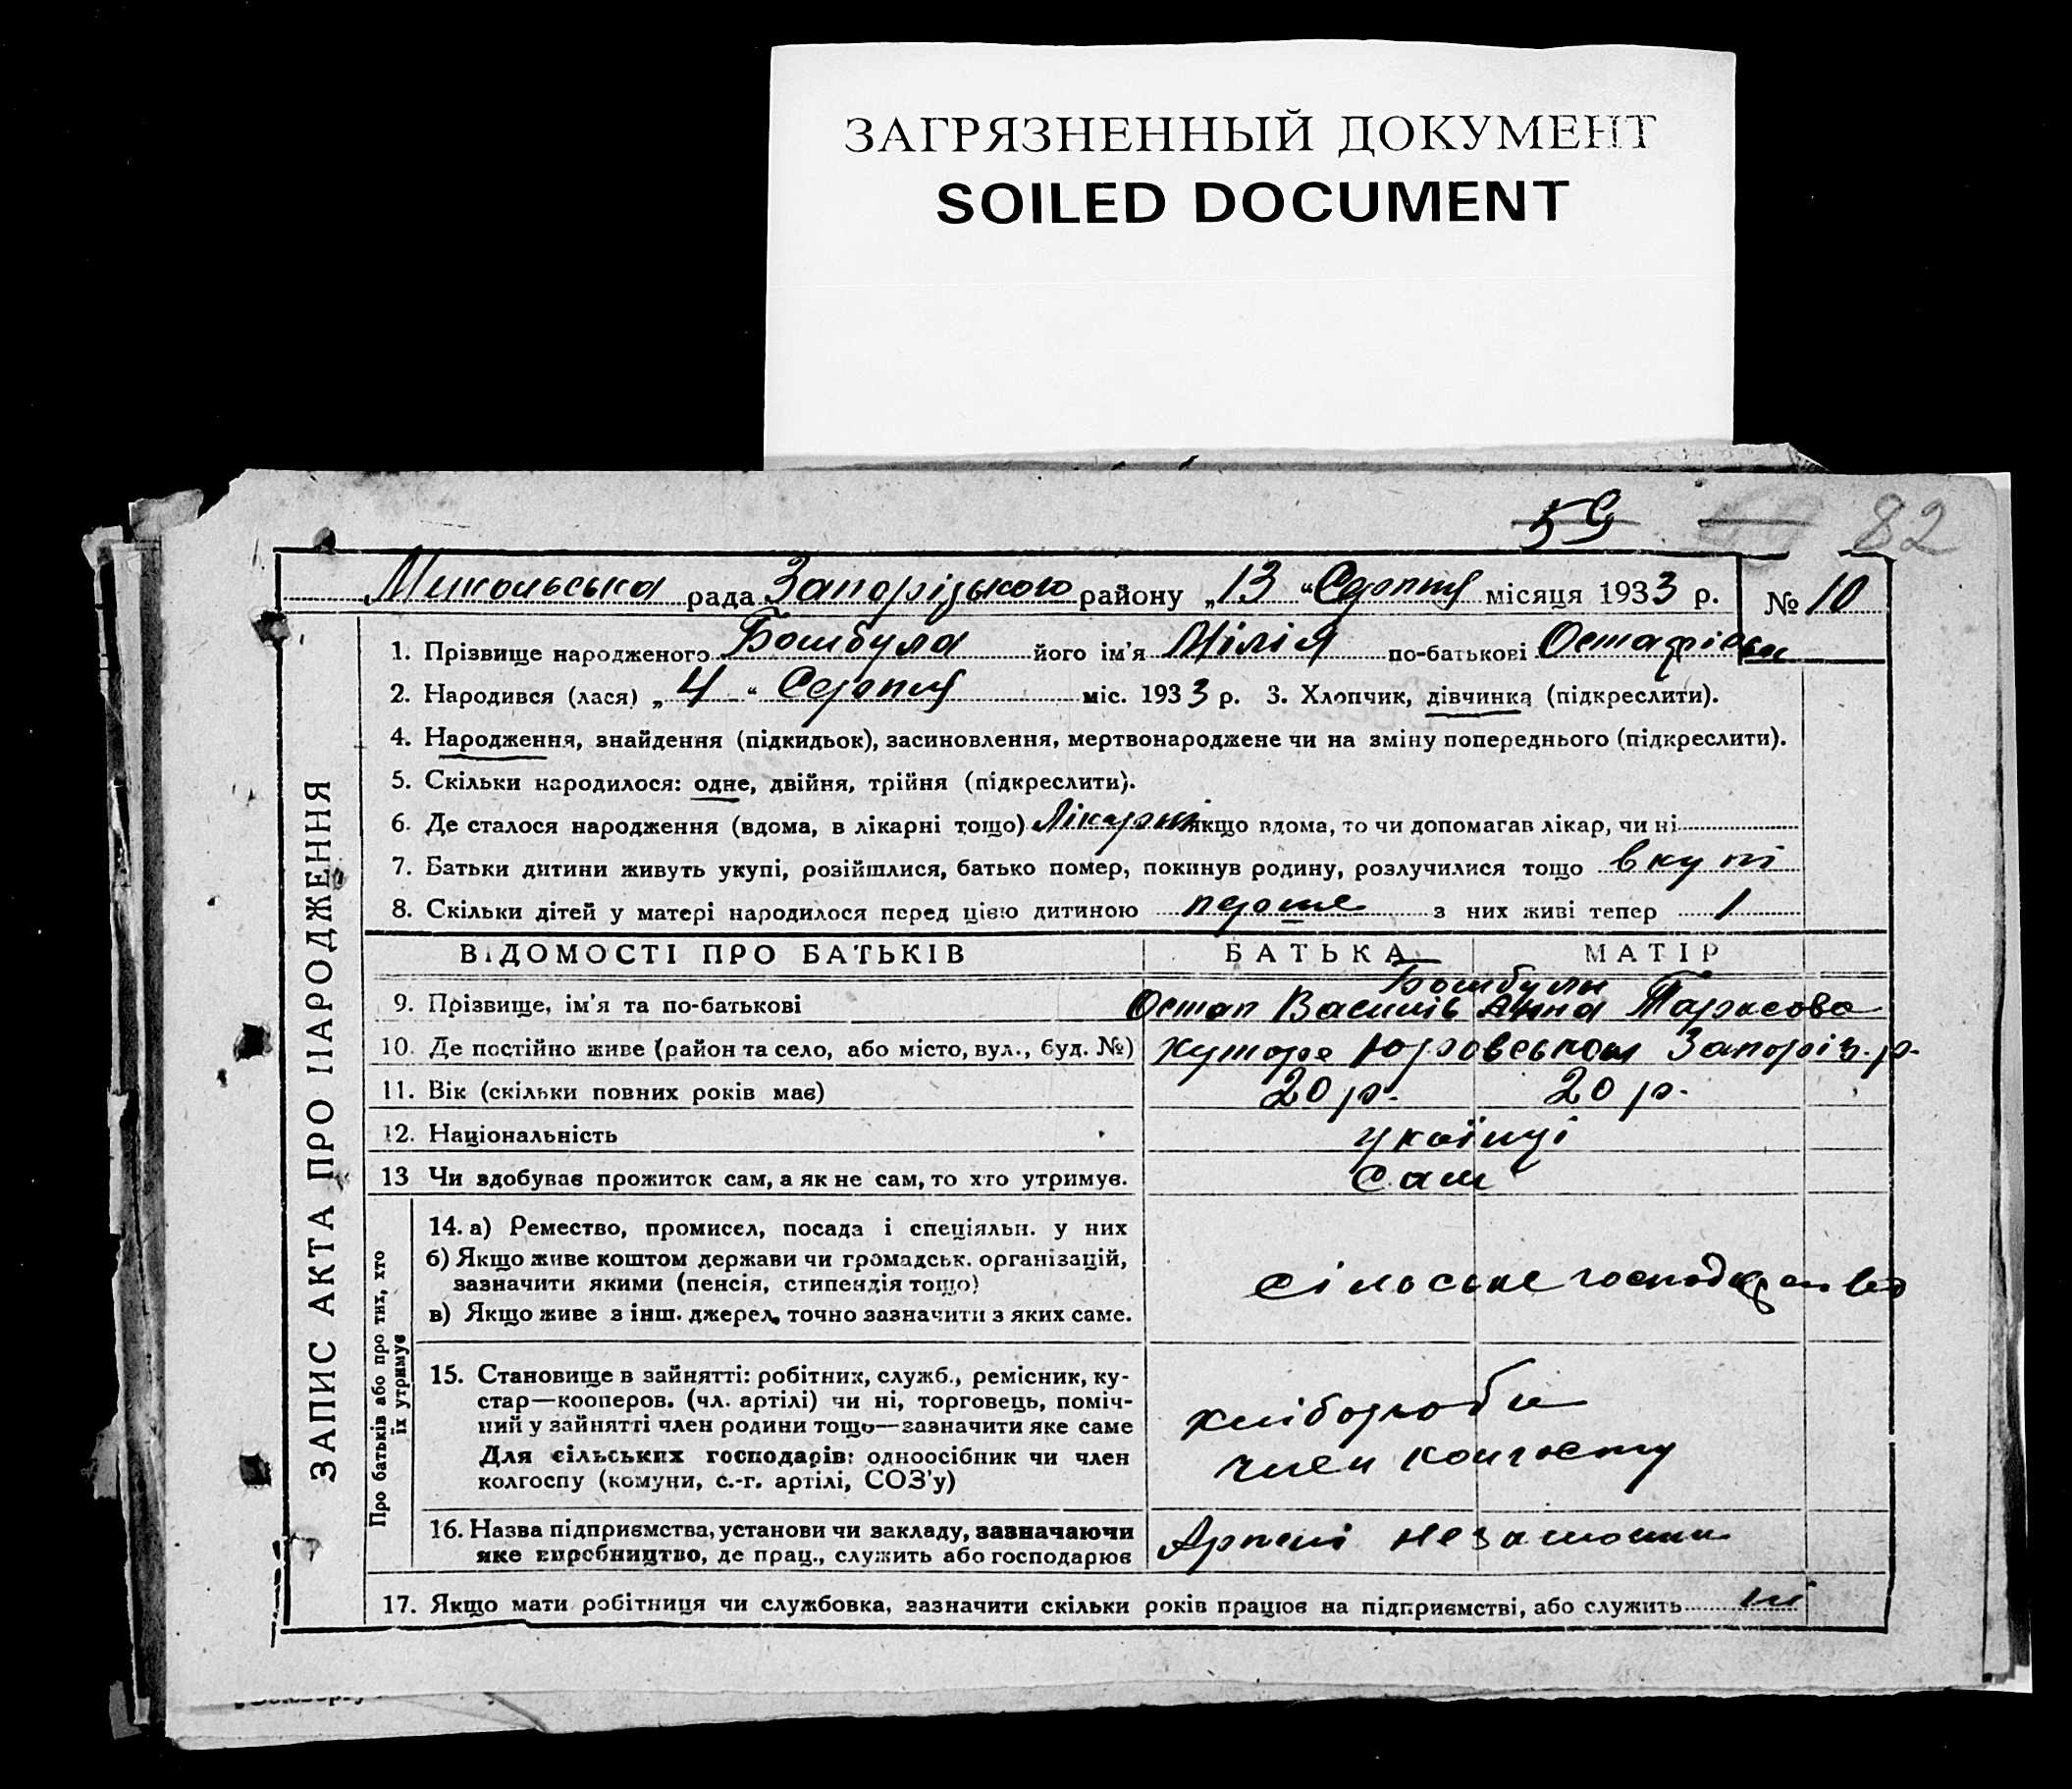 ЗАГРЯЗНЕННЫЙ ДОКУМЕНТ
SOILED DOCUMENT
59 82
Микольська рада Запорізького району „13“ Серпня місяця 1933 р. № 10
ЗАПИС АКТА ПРО НАРОДЖЕННЯ
1. Прізвище народженого Бошбула його ім'я Лілія по-батькові Остапівна
2. Народився (лася) „4“ Серпня міс. 1933 р. 3. Хлопчик, дівчинка (підкреслити).
4. Народження, знайдення (підкидьок), засиновлення, мертвонароджене чи на зміну попереднього (підкреслити).
5. Скільки народилося: одне, двійня, трійня (підкреслити).
6. Де сталося народження (вдома, в лікарні тощо) Лікарні якщо вдома, то чи допомагав лікар, чи ні
7. Батьки дитини живуть укупі, розійшлися, батько помер, покинув родину, розлучилися тощо вкупі
8. Скільки дітей у матері народилося перед цією дитиною перше з них живі тепер 1
ВІДОМОСТІ ПРО БАТЬКІВ БАТЬКА МАТІР
Бошбули
9. Прізвище, ім'я та по-батькові Остап Василів Анна Тарасова
10. Де постійно живе (район та село, або місто, вул., буд. №) хуторе Юровськом Запоріз. р.
11. Вік (скільки повних років має) 20 р. 20 р.
12. Національність украінці
13 Чи здобував прожиток сам, а як не сам, то хто утримує. Сам
Про батьків або про тих, хто
їх утримує
14. а) Ремество, промисел, посада і спеціяльн. у них
б) Якщо живе коштом держави чи громадськ. організацій,
зазначити якими (пенсія, стипендія тощо)
сільське господарство
в) Якщо живе з інш. джерел, точно зазначити з яких саме.
15. Становище в зайнятті: робітник, служб., ремісник, ку-
стар—кооперов. (чл. артілі) чи ні, торговець, поміч-
ний у зайнятті член родини тощо—зазначити яке саме
хлібороби
Для сільських господарів: одноосібник чи член
колгоспу (комуни, с.-г. артілі, СОЗ'у)
член колгоспу
16. Назва підприємства, установи чи закладу, зазначаючи
яке виробництво, де прац., служить або господарює
Артілі незаможник
17. Якщо мати робітниця чи службовка, зазначити скільки років працює на підприємстві, або служить ні